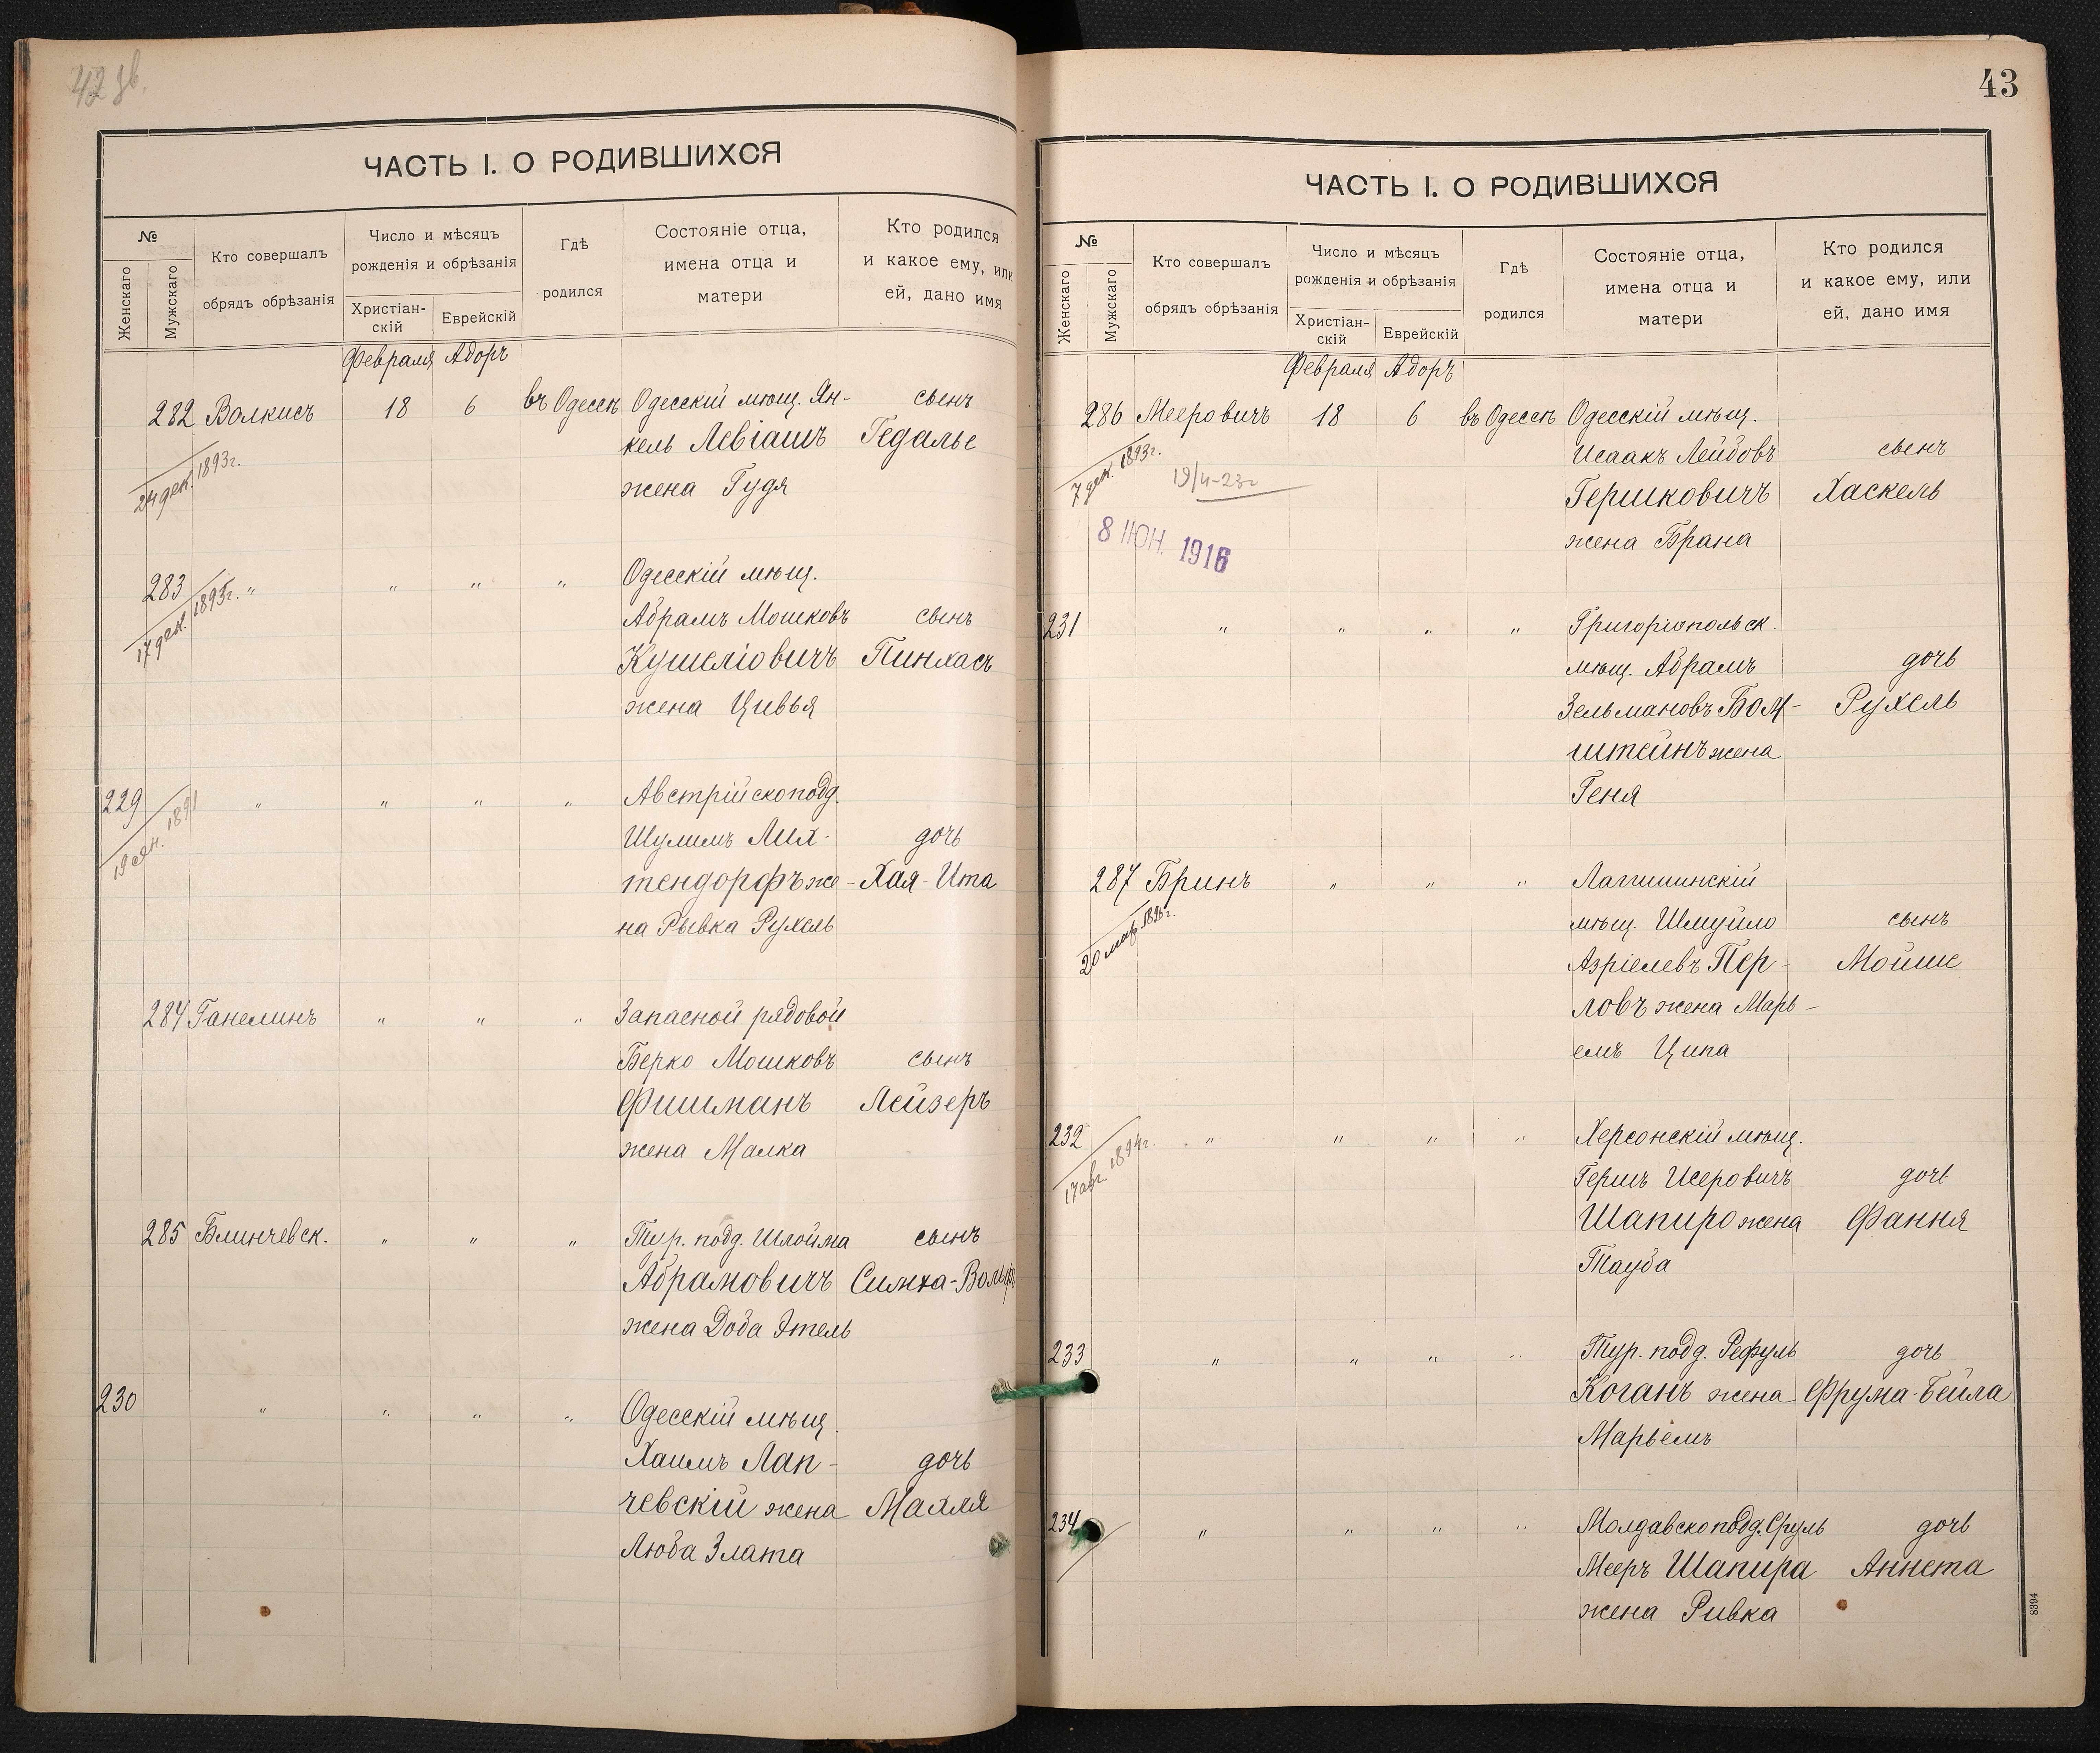 42 зв.
ЧАСТЬ I. О РОДИВШИХСЯ
№
Женскаго
Мужскаго
Кто совершалъ
обрядъ обрѣзанія
Число и мѣсяцъ
рожденія и обрѣзанія
Христіан-
скій
Еврейскій
Гдѣ
родился
Состояніе отца,
имена отца и
матери
Кто родился
и какое ему, или
ей, дано имя
Февраля Адоръ
282 Волкисъ 18 6 въ Одессѣ Одесскій мѣщ. Ян- сынъ
кель Левіашъ Гедалье
24 дек. 1893г.
жена Гудя
283 " " " " Одесскій мѣщ.
17 дек. 1893г.
Абрамъ Мошковъ сынъ
Кушеліовичъ Пинхасъ
жена Цивья
229 " " " " Австрійскоподд.
19 1891
Шулимъ Лих- дочь
тендорфъ же- Хая-Ита
на Рывка Рухель
284 Ганелинъ " " " Запасной рядовой
Берко Мошковъ сынъ
Фишманъ Лейзеръ
жена Малка
285 Блинчевск. " " " Тур. подд. Шлойма сынъ
Абрамовичъ Симха-Вольф.
жена Доба Этель
230 " " " " Одесскій мѣщ.
Хаимъ Лап- дочь
чевскій жена Махля
Люба Злата
43
ЧАСТЬ I. О РОДИВШИХСЯ
№
Женскаго
Мужскаго
Кто совершалъ
обрядъ обрѣзанія
Число и мѣсяцъ
рожденія и обрѣзанія
Христіан-
скій
Еврейскій
Гдѣ
родился
Состояніе отца,
имена отца и
матери
Кто родился
и какое ему, или
ей, дано имя
Февраля Адоръ
286 Мееровичъ 18 6 въ Одессѣ Одесскій мѣщ.
7 дек. 1893г.
Исаакъ Лейбовъ сынъ
19/4-23г
Гершковичъ Хаскель
8 ІЮН. 1916
жена Брана
231 " " " " Григоріопольск.
мѣщ. Абрамъ дочь
Зельмановъ Бом- Рухель
штейнъ жена
Геня
287 Бринъ " " " Лагишинскій
20 мар. 1896г.
мѣщ. Шмуйло сынъ
Азріелевъ Пер- Мойше
ловъ жена Марь-
емъ Ципа
232 " " " " Херсонскій мѣщ.
17 авг. 1894г.
Гершъ Исеровичъ дочь
Шапиро жена Фання
Тауба
233 " " " " Тур. подд. Рефуль дочь
Коганъ жена Фрума-Бейла
Марьемъ
234 " " " " Молдавскоподд. Сруль дочь
Мееръ Шапира Аннета
жена Ривка
8394